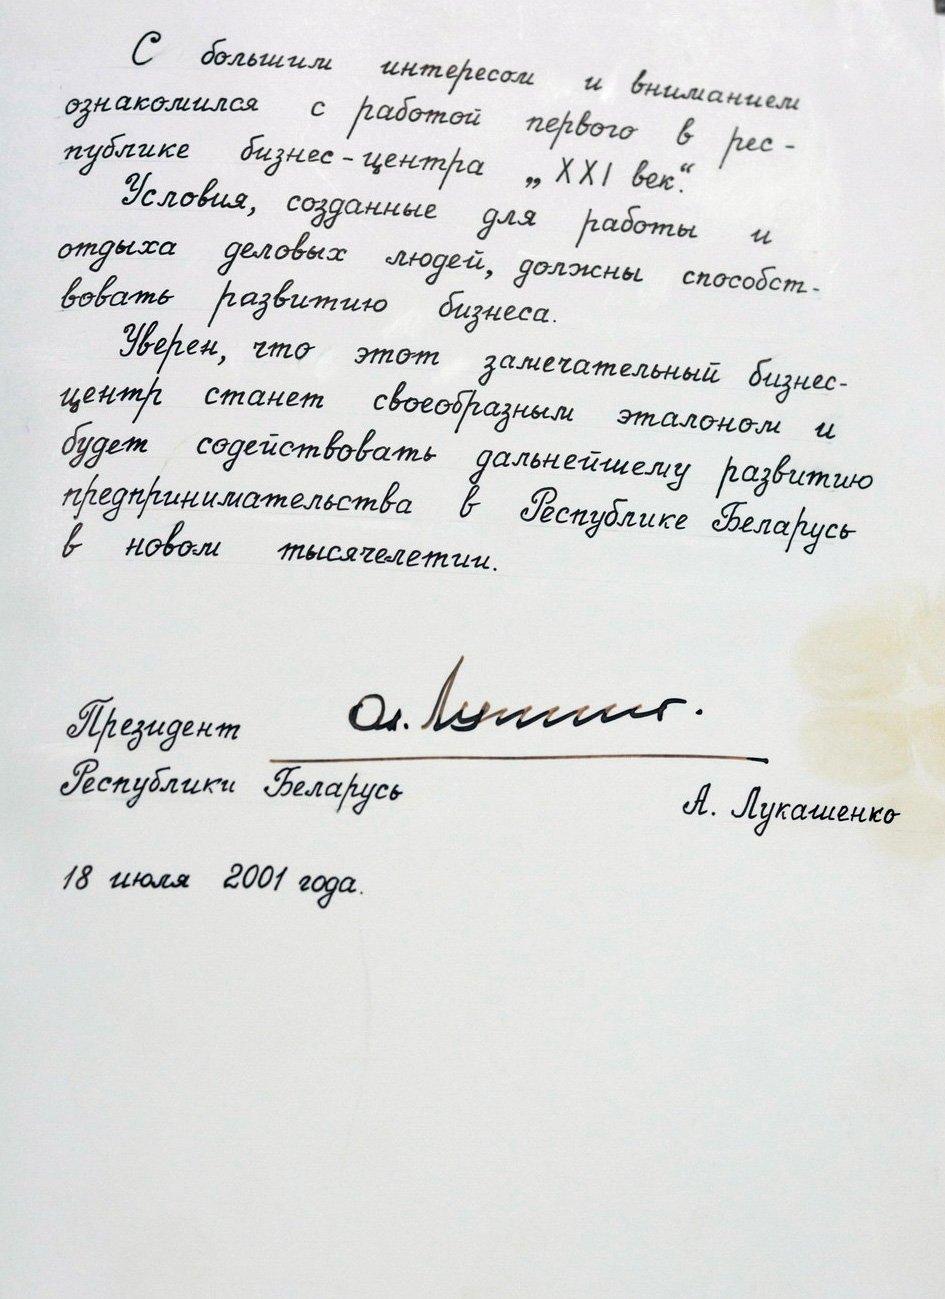 С большим интересом и вниманием
ознакомился с работой первого в рес-
публике бизнес-центра „XXI век“.
Условия, созданные для работы и
отдыха деловых людей, должны способст-
вовать развитию бизнеса.
Уверен, что этот замечательный бизнес-
центр станет своеобразным эталоном и
будет содействовать дальнейшему развитию
предпринимательства в Республике Беларусь
в новом тысячелетии.
Президент
Республики Беларусь
А. Лукашенко
18 июля 2001 года.